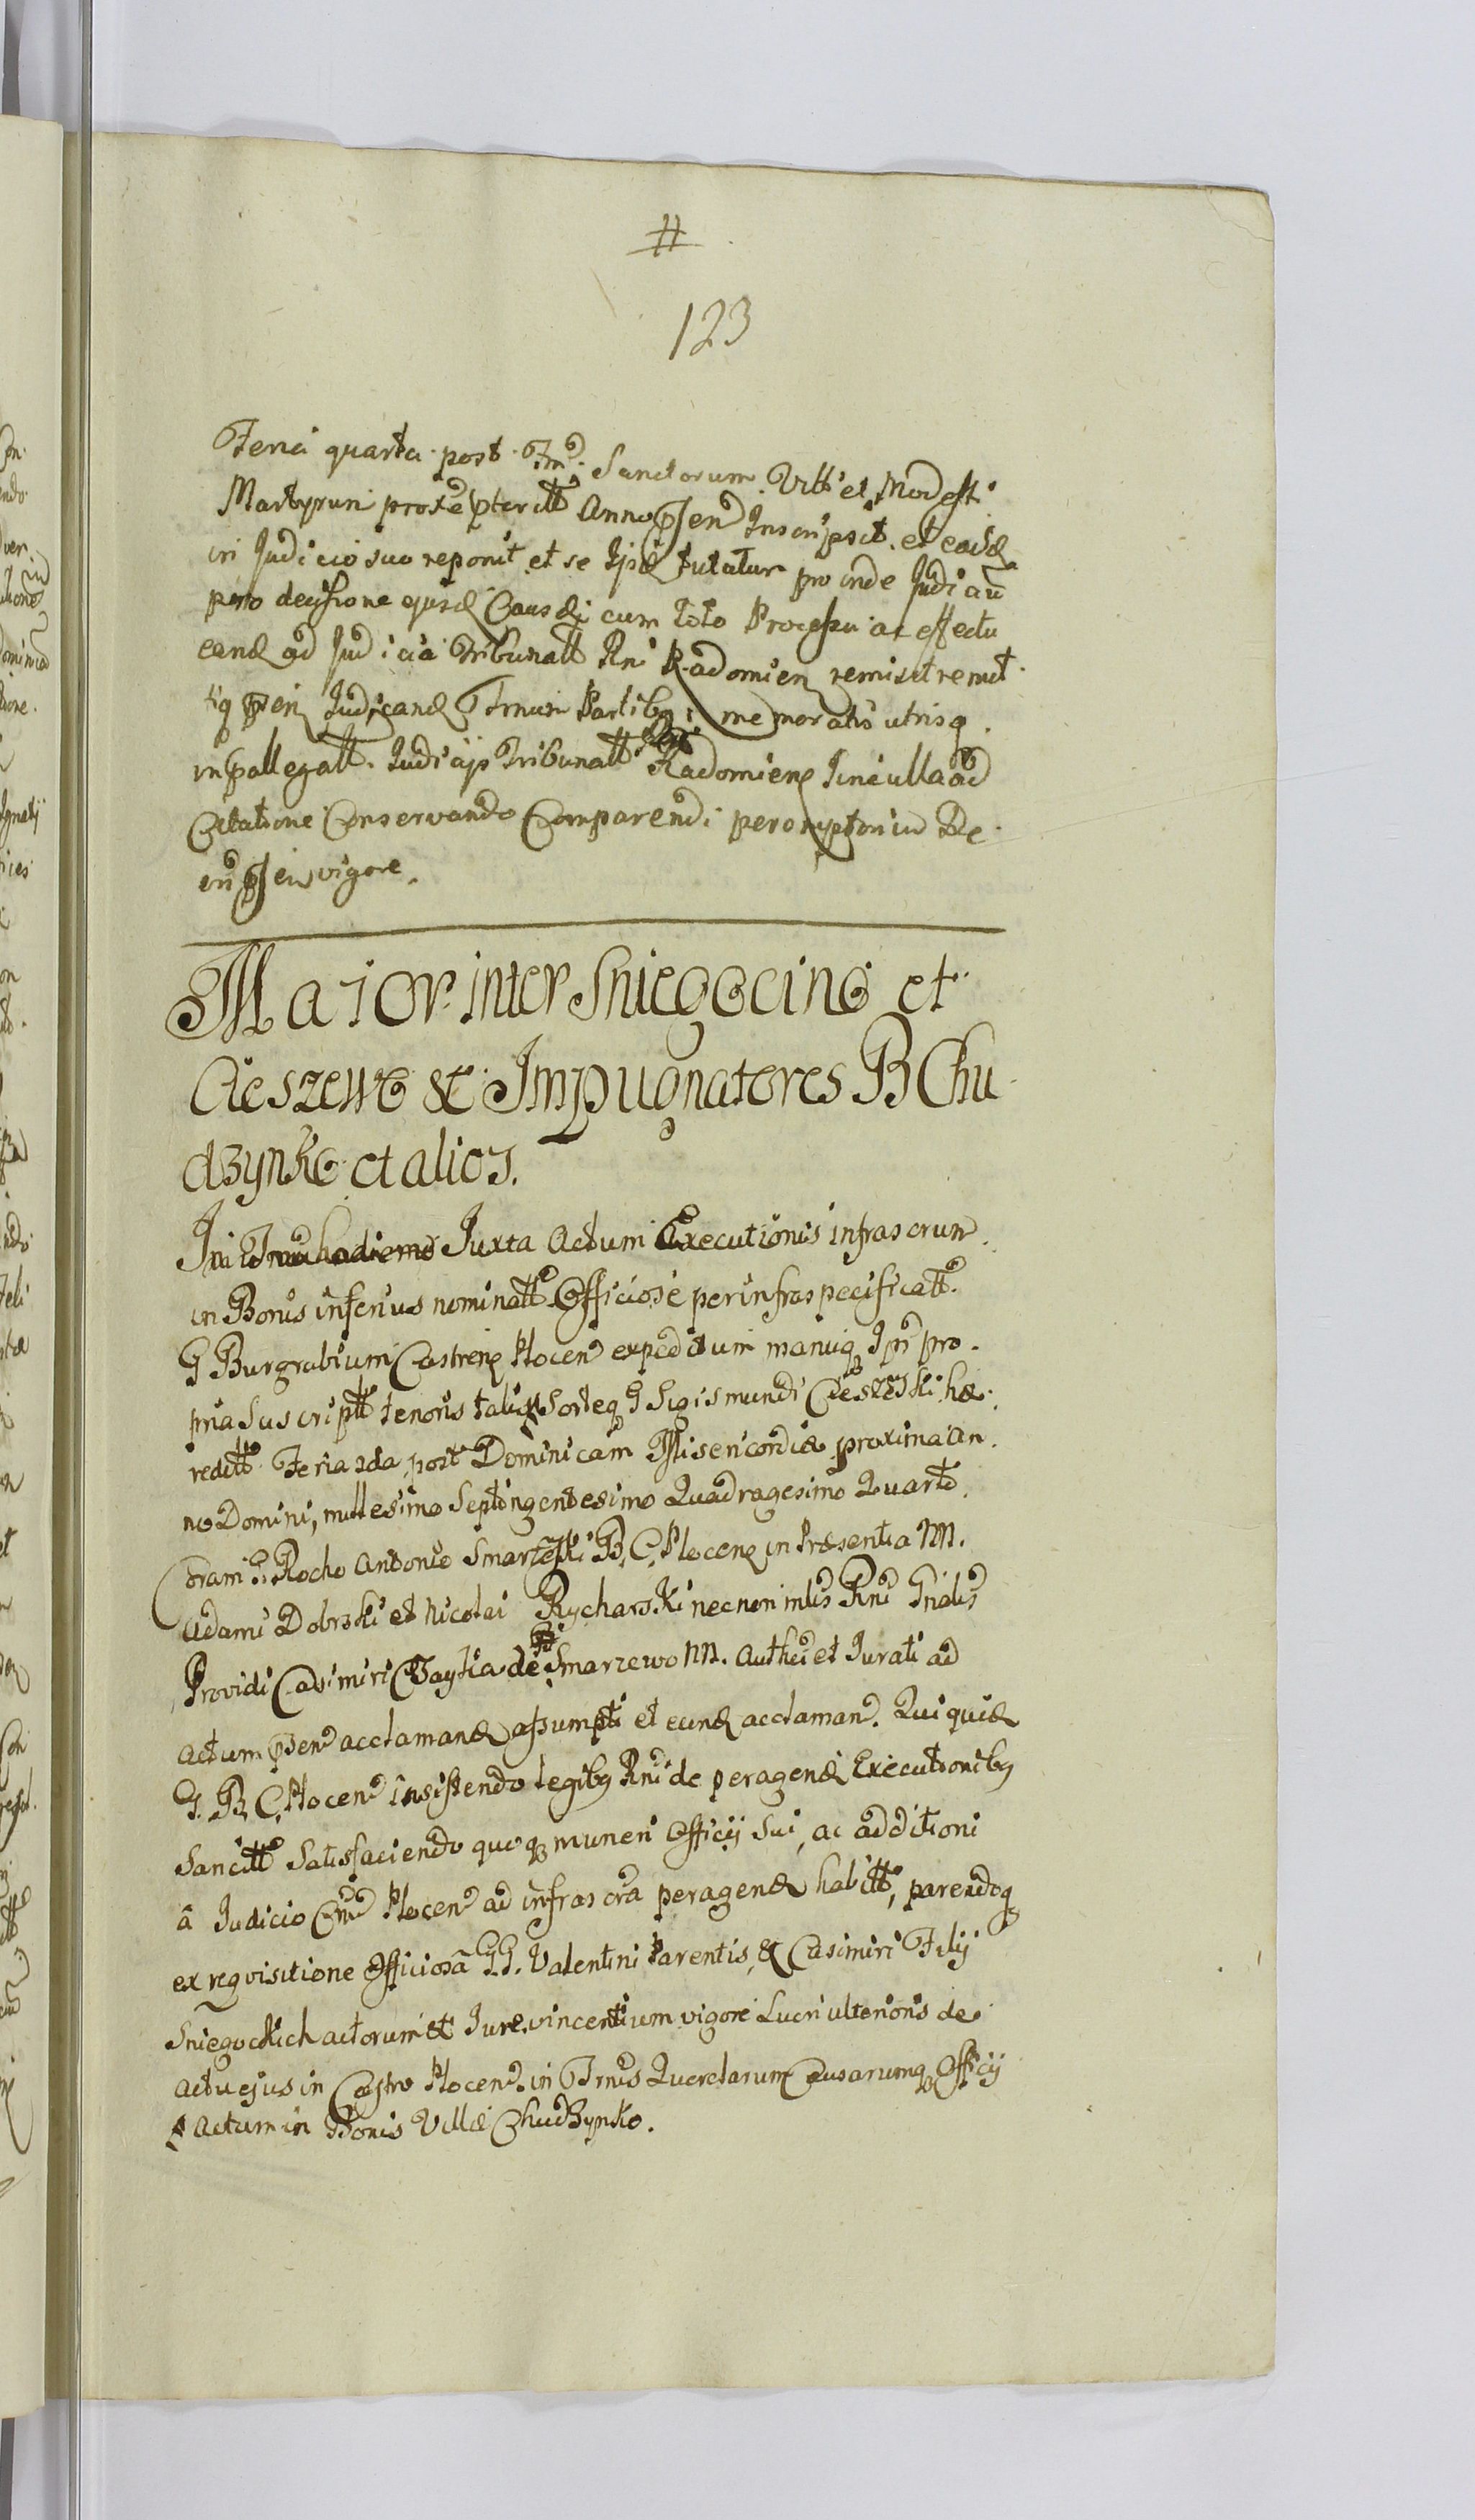 #
123
Feria quarta post Fm̃ Sanctorum Viti et Modesti
Martyrum prox̃e pterittt Anno pñen Inscripsit et eaď
in Judicio suo reponit et se Ipsũ tutatur pro inde Judiciũ
pro decisione ejusď Causæ cum toto Processu ac effectu
eanď ad Judicia Tribunatt Rni Radomien remisit remit
tiq pñen Judicanď Trnum Partibq memoratis utrisq
in pallegatt Judicijs Tribunatt Radomienq sine ulla ad
Citatione Conservando Comparendi peremptorium De
cri pñen vigore.
Maior inter Sniegocing et
Cieszewo & Impugnatores B Chu
dzynko et alios.
In Trno hodierno Juxta Actum Executionis infrascrum
in Bonis inferius nominatt Officiose per infraspecificatt
G Burgrabium Castrenq Plocen expeditum manuq Ipñ pro
pria Suscriptt tenoris talis Sorteq G Sigismundi Cieszewski hæ
reditt Feria 2da post Dominicam Misericordiæ proxima An
no Domini, millesimo Septingentesimo Quadragesimo Quarto
Coram G. Rocho Antonio Smarzewski B. C. Plocenq in Præsentia NN.
Adami Dobrski et Nicolai Rycharski necnon mlis Rni Gnalis
Providi Casimiri Czaytia de Smarzewo NN. Authci et Jurati ad
actum pñen acclamanď assumpti et eunď acclaman. Qui quiď
G. B. C. Plocen insistendo legibq Rni de peragenď Executionibq
Sancitt Satisfaciendo quoq muneri Officij Sui, ac additioni
â Judicio Crñ Plocen ad infrascra peragenď habitt, parendoq
ex reqvisitione Officiosâ GG. Valentini Parentis, & Casimiri Filij
Sniegockich actorum & Jure vincentium vigore Lucri ulterioris de
actu ejus in Castro Plocen in Trnis Querelarum Causarumq Officij
Actum in Bonis Villæ Chudzynko.